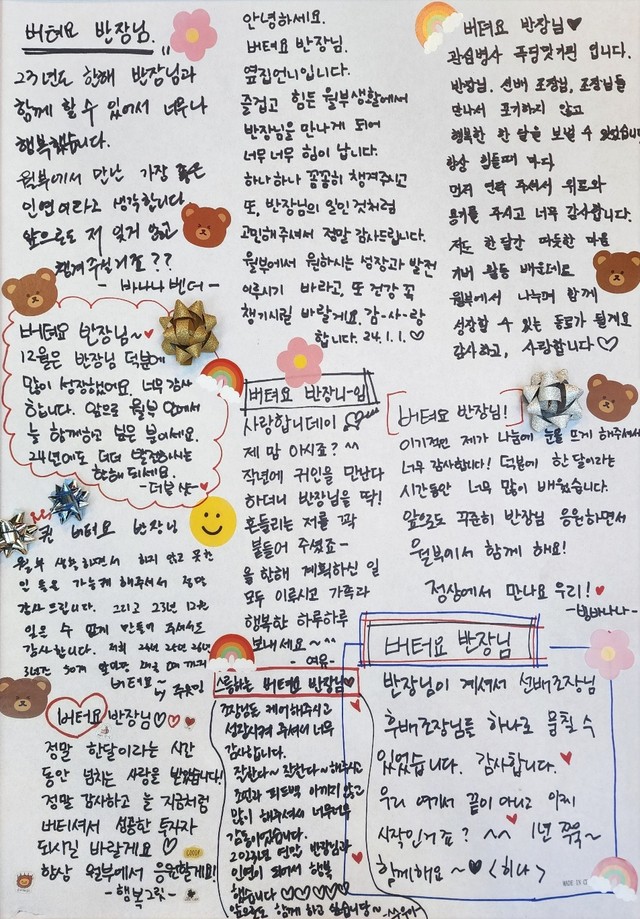 버텨요 반장님..
23년도 한해 반장님과
함께 할 수 있어서 너무나
행복했습니다.
월부에서 만난 가장 좋은
인연이라고 생각합니다
앞으로도 저 잊지 않고
챙겨주실거죠??
- 바나나 벤더 -
안녕하세요.
버텨요 반장님.
옆집언니입니다.
즐겁고 힘든 월부생활에서
반장님을 만나게 되어
너무 너무 힘이 납니다.
하나하나 꼼꼼히 챙겨주시고
또, 반장님의 일인것처럼
고민해주셔서 정말 감사드립니다.
월부에서 원하시는 성장과 발전
이루시기 바라고, 또 건강 꼭
챙기시길 바랄게요. 감-사-랑
합니다. 24.1.1.♡
버텨요 반장님♥
관심병사 입니다.
반장님. 선배 조장님, 조장님들
만나서 포기하지 않고
행복한 한 달을 보낼 수 있었습니
항상 힘들때 마다
먼저 연락 주셔서 위로와
용기를 주시고 너무 감사합니다.
저도 한달간 따듯한 마음
활동 배운대로
월부에서 나누며 함께
성장할 수 있는 동료가 될게요
감사하고, 사랑합니다♡
버텨요 반장님~♥
12월은 반장님 덕분에
많이 성장했어요. 너무 감사
합니다. 앞으로 월부 안에서
늘 함께하고 싶은 분이세요.
24년에도 더더 발전하시는
한해 되세요.
버텨요 반장니-임
사랑합니데이
제 맘 아시죠? ^^
작년에 귀인을 만난다
하더니 반장님을 딱!
흔들리는 저를 꽉
붙들어 주셨죠-
올 한해 계획하신 일
모두 이루시고 가족과
행복한 하루하루
보내세요~^^
- 여유 -
버텨요 반장님!
이기적인 제가 나눔에 눈을 뜨게 해주셔서
너무 감사합니다! 덕분에 한달이라는
시간동안 너무 많이 배웠습니다.
앞으로도 꾸준히 반장님 응원하면서
월부에서 함께 해요!
정상에서 만나요 우리!♥
버텨요 반장님
월부 생활하면서 하지 않고 못한
일들을 가능케 해주셔서 정말
감사드립니다. 그리고 23년 12월
잊을 수 없게 만들어 주셔서도
감사합니다. 저희 24년
버텨요~
버텨요 반장님♡♡♡
정말 한달이라는 시간
동안 넘치는 사랑을 받았습니다!
정말 감사하고 늘 지금처럼
버티셔서 성공한 투자자
되시길 바랄게요♡
항상 월부에서 응원할게요!
- 행복그릿 -
GOOD
스릉하는 버텨요 반장님♥
조장님들 케어해주시고
성장시켜 주셔서 너무
감사합니다.
잘한다~ 잘한다~ 해주시고
조언과 피드백 아끼지 않고
많이 해주셔서 너무너무
감동이었습니다.
2023년 연말 반장님과
인연이 되어서 행복
했습니다♡♡♡♡♡
앞으로도 함께 하고 싶습니다~
버텨요 반장님
반장님이 계셔서 선배조장님
후배조장님들 하나로 뭉칠 수
있었습니다. 감사합니다.
우리 여기서 끝이 아니고 이제
시작인거죠? ^^ 1년 쭈욱~
함께해요~♥ <히나>